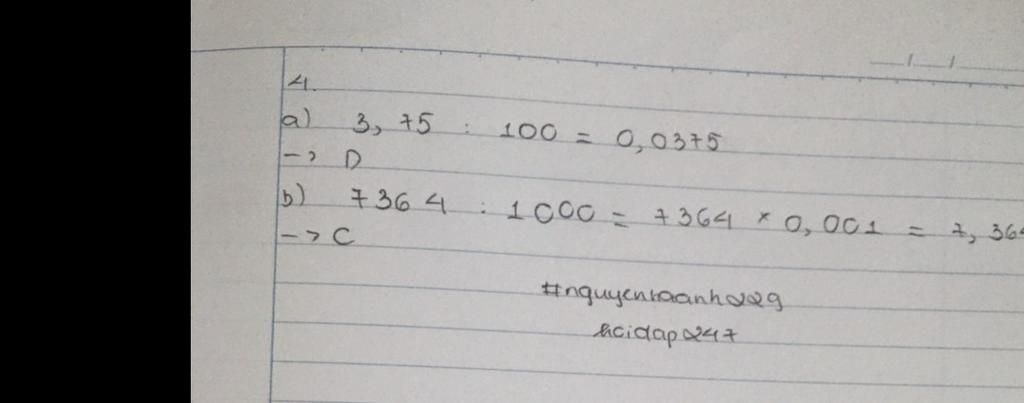 4.
a) 3,75 : 100 = 0,0375
-> D
b) 7364 : 1000 = 7364 × 0,001 = 7,364
-> C
hoidap247